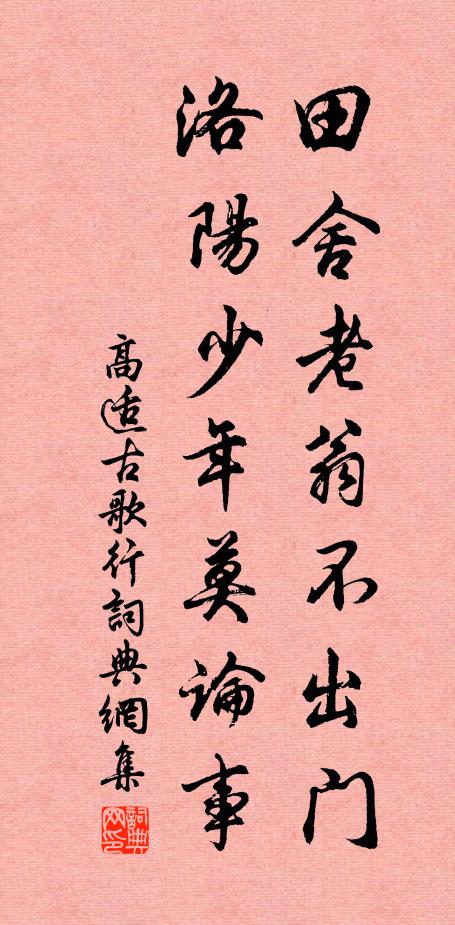 田舍老翁不出門
洛陽少年莫論事
高适古歌行詞典網集
詞典網印